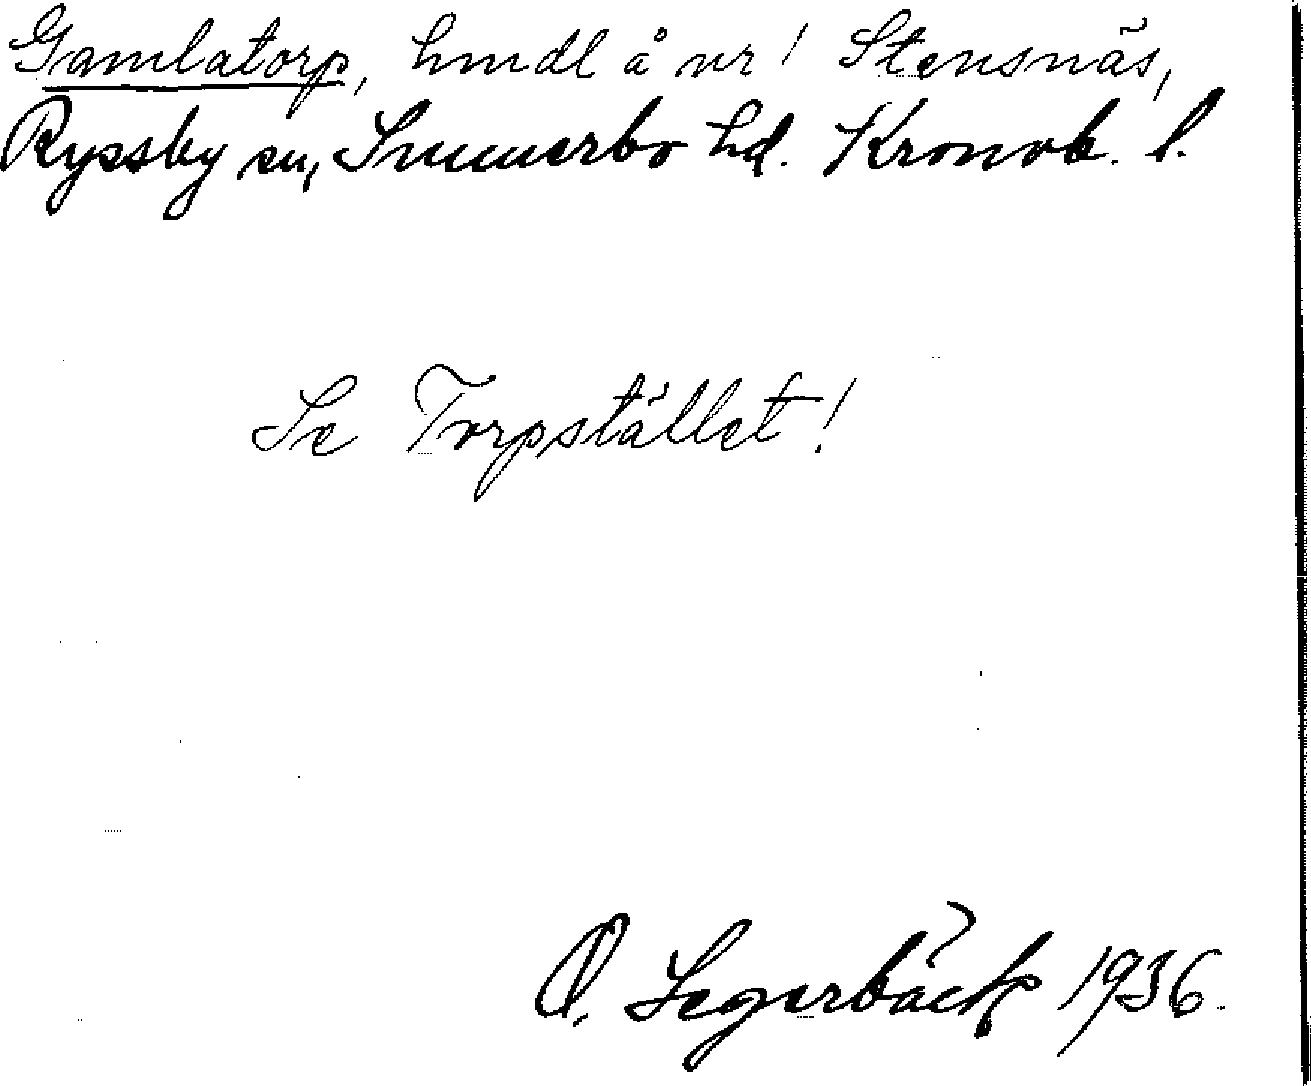 Gamlatorp, hmdl å nr 1 Stensnäs,
Ryssby sn, Sunnerbo hd. Kronob. l.
Se Torpstället!
O. Segerbäck 1936.